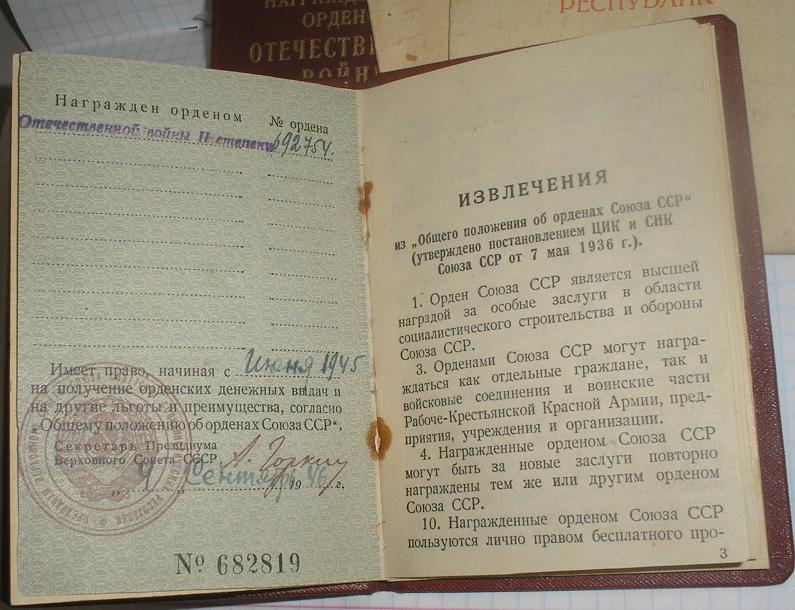 НАГРАЖД
ОРДЕНО
ОТЕЧЕСТВЕ
ВОЙН
РЕСПУБЛИК
Награжден орденом № ордена
Отечественной войны II степени 692754.
Имеет право, начиная с Июня 1945
на получение орденских денежных выдач и
на другие льготы и преимущества, согласно
„Общему положению об орденах Союза ССР“.
Секретарь Президиума
Верховного Совета СССР А. Горкин
„ “ Сентября 1946 г.
№ 682819
ИЗВЛЕЧЕНИЯ
из „Общего положения об орденах Союза ССР“
(утверждено постановлением ЦИК и СНК
Союза ССР от 7 мая 1936 г.).
1. Орден Союза ССР является высшей
наградой за особые заслуги в области
социалистического строительства и обороны
Союза ССР.
3. Орденами Союза ССР могут награ-
ждаться как отдельные граждане, так и
войсковые соединения и воинские части
Рабоче-Крестьянской Красной Армии, пред-
приятия, учреждения и организации.
4. Награжденные орденом Союза ССР
могут быть за новые заслуги повторно
награждены тем же или другим орденом
Союза ССР.
10. Награжденные орденом Союза ССР
пользуются лично правом бесплатного про-
3